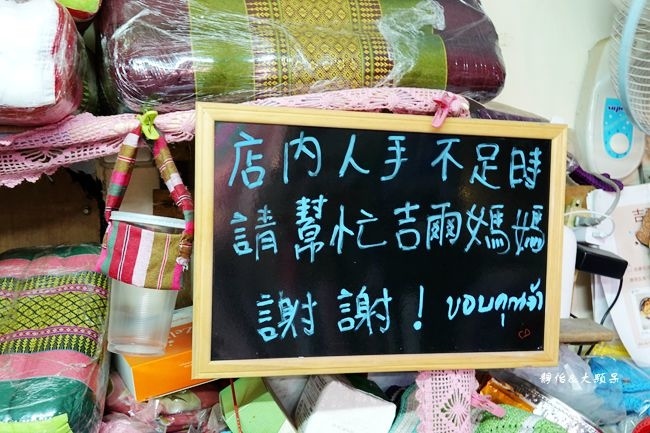 店內人手不足時
請幫忙吉爾媽媽
謝謝！ ขอบคุณจ้า
靜怡&大顆呆